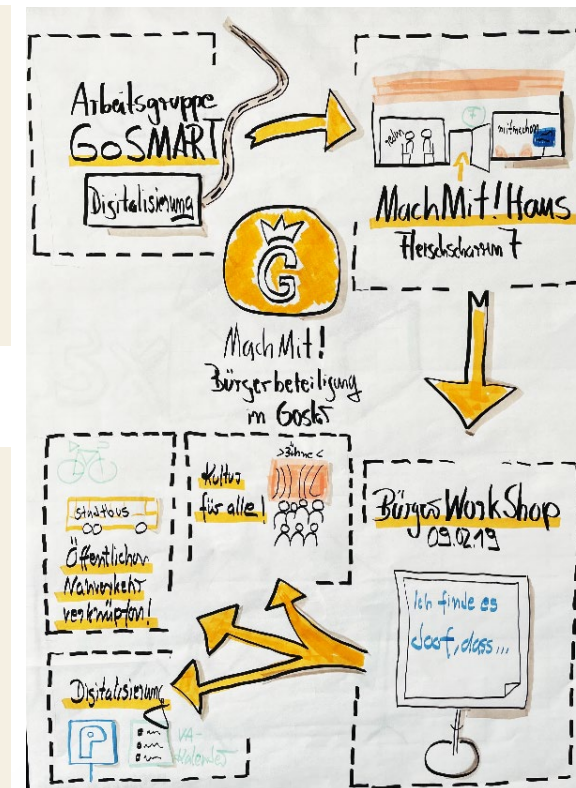 Arbeitsgruppe
GoSMART
Digitalisierung
reden
mitmachen
MachMit! Haus
Fleischscharren 7
G
MachMit!
Bürgerbeteiligung
in Goslar
Stadtbus
Öffentlichen
Nahverkehr
verknüpfen!
Kultur
für alle!
>Bühne<
BürgerWorkShop
09.02.19
Ich finde es
doof, dass...
Digitalisierung
P
VA-
Kalender